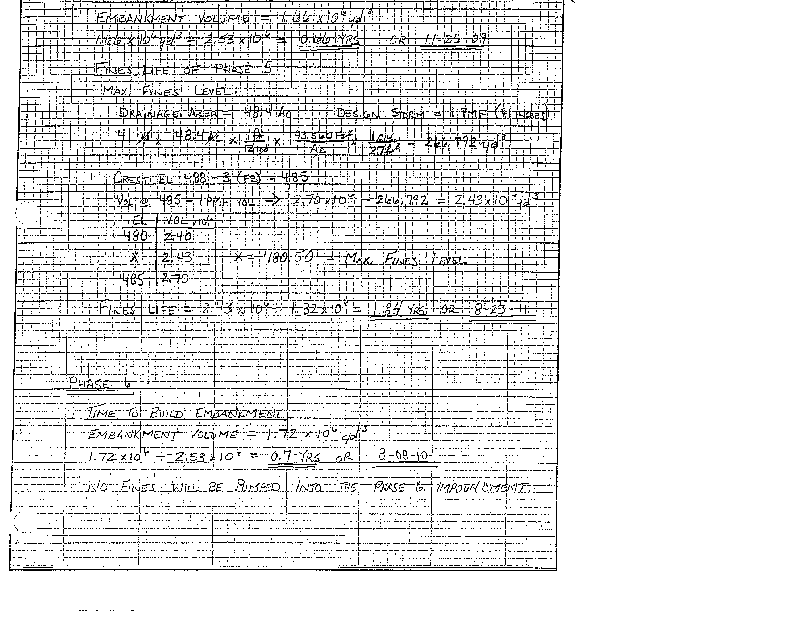 EMBANKMENT VOLUME = 1.66 x10⁶ yd³
1.66 x10⁶ yd³ ÷ 2.53 x10⁶ = 0.66 YRS OR
FINES LIFE OF PHASE 5
MAX. FINES LEVEL:
DRAINAGE AREA = 48.4 AC DESIGN STORM = PMF
48.4 AC x x 43560 FT² = 266,792 yd³
CREST EL 488 - 3' = 485
VOL @ 485 - PMF VOL → 2.70x10⁶ - 266,792 = 2.43x10⁶ yd³
EL VOL x10⁶
480 2.40
X 2.43 X = 480.50 = MAX. FINES LEVEL
485 2.70
FINES LIFE = ÷ 1.32x10⁶ = YRS OR
PHASE 6
TIME TO BUILD EMBANKMENT
EMBANKMENT VOLUME = 1.72 x10⁶ yd³
1.72x10⁶ ÷ 2.53 x10⁶ = 0.7 YRS OR
NO FINES WILL BE PUMPED INTO THE PHASE 6 IMPOUNDMENT.